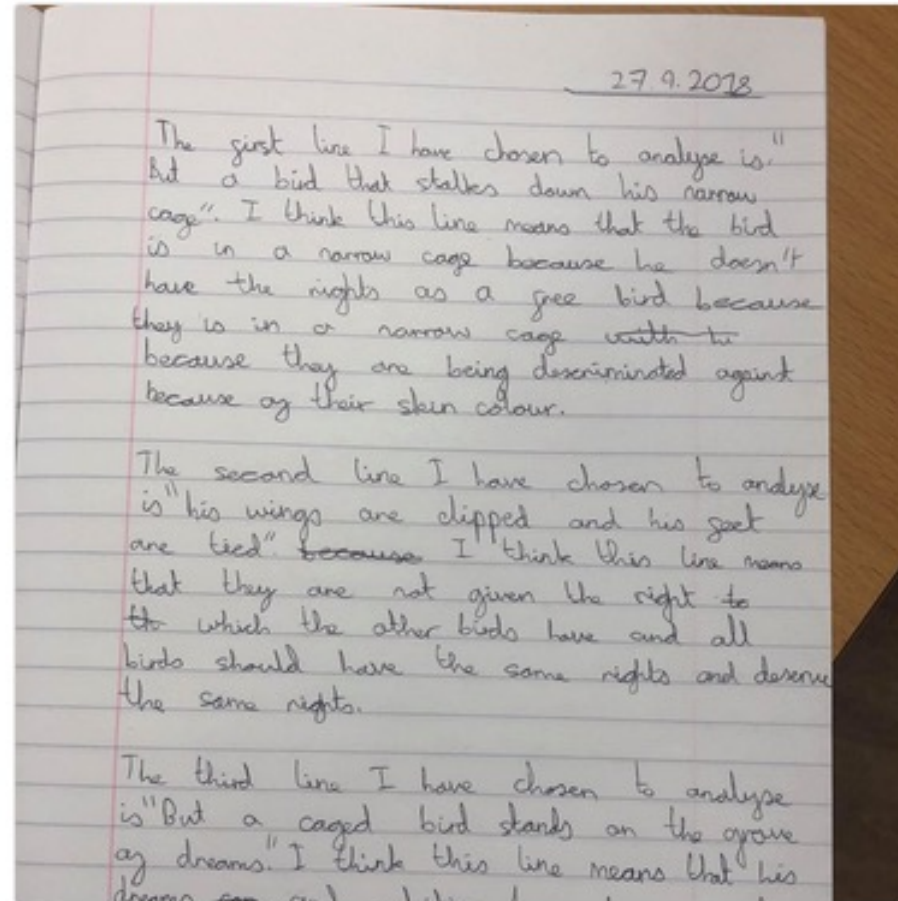 27.9.2018
The first line I have chosen to analyse is."
But a bird that stalks down his narrow
cage". I think this line means that the bird
is in a narrow cage because he doesn't
have the rights as a free bird because
they is in a narrow cage
because they are being descriminated against
because of their skin colour.
The second line I have chosen to analyse
is "his wings are clipped and his feet
are tied" because I think this line means
that they are not given the right to
which the other birds have and all
birds should have the same rights and deserve
the same rights.
The third line I have chosen to analyse
is "But a caged bird stands on the grave
of dreams." I think this line means that his
dreams